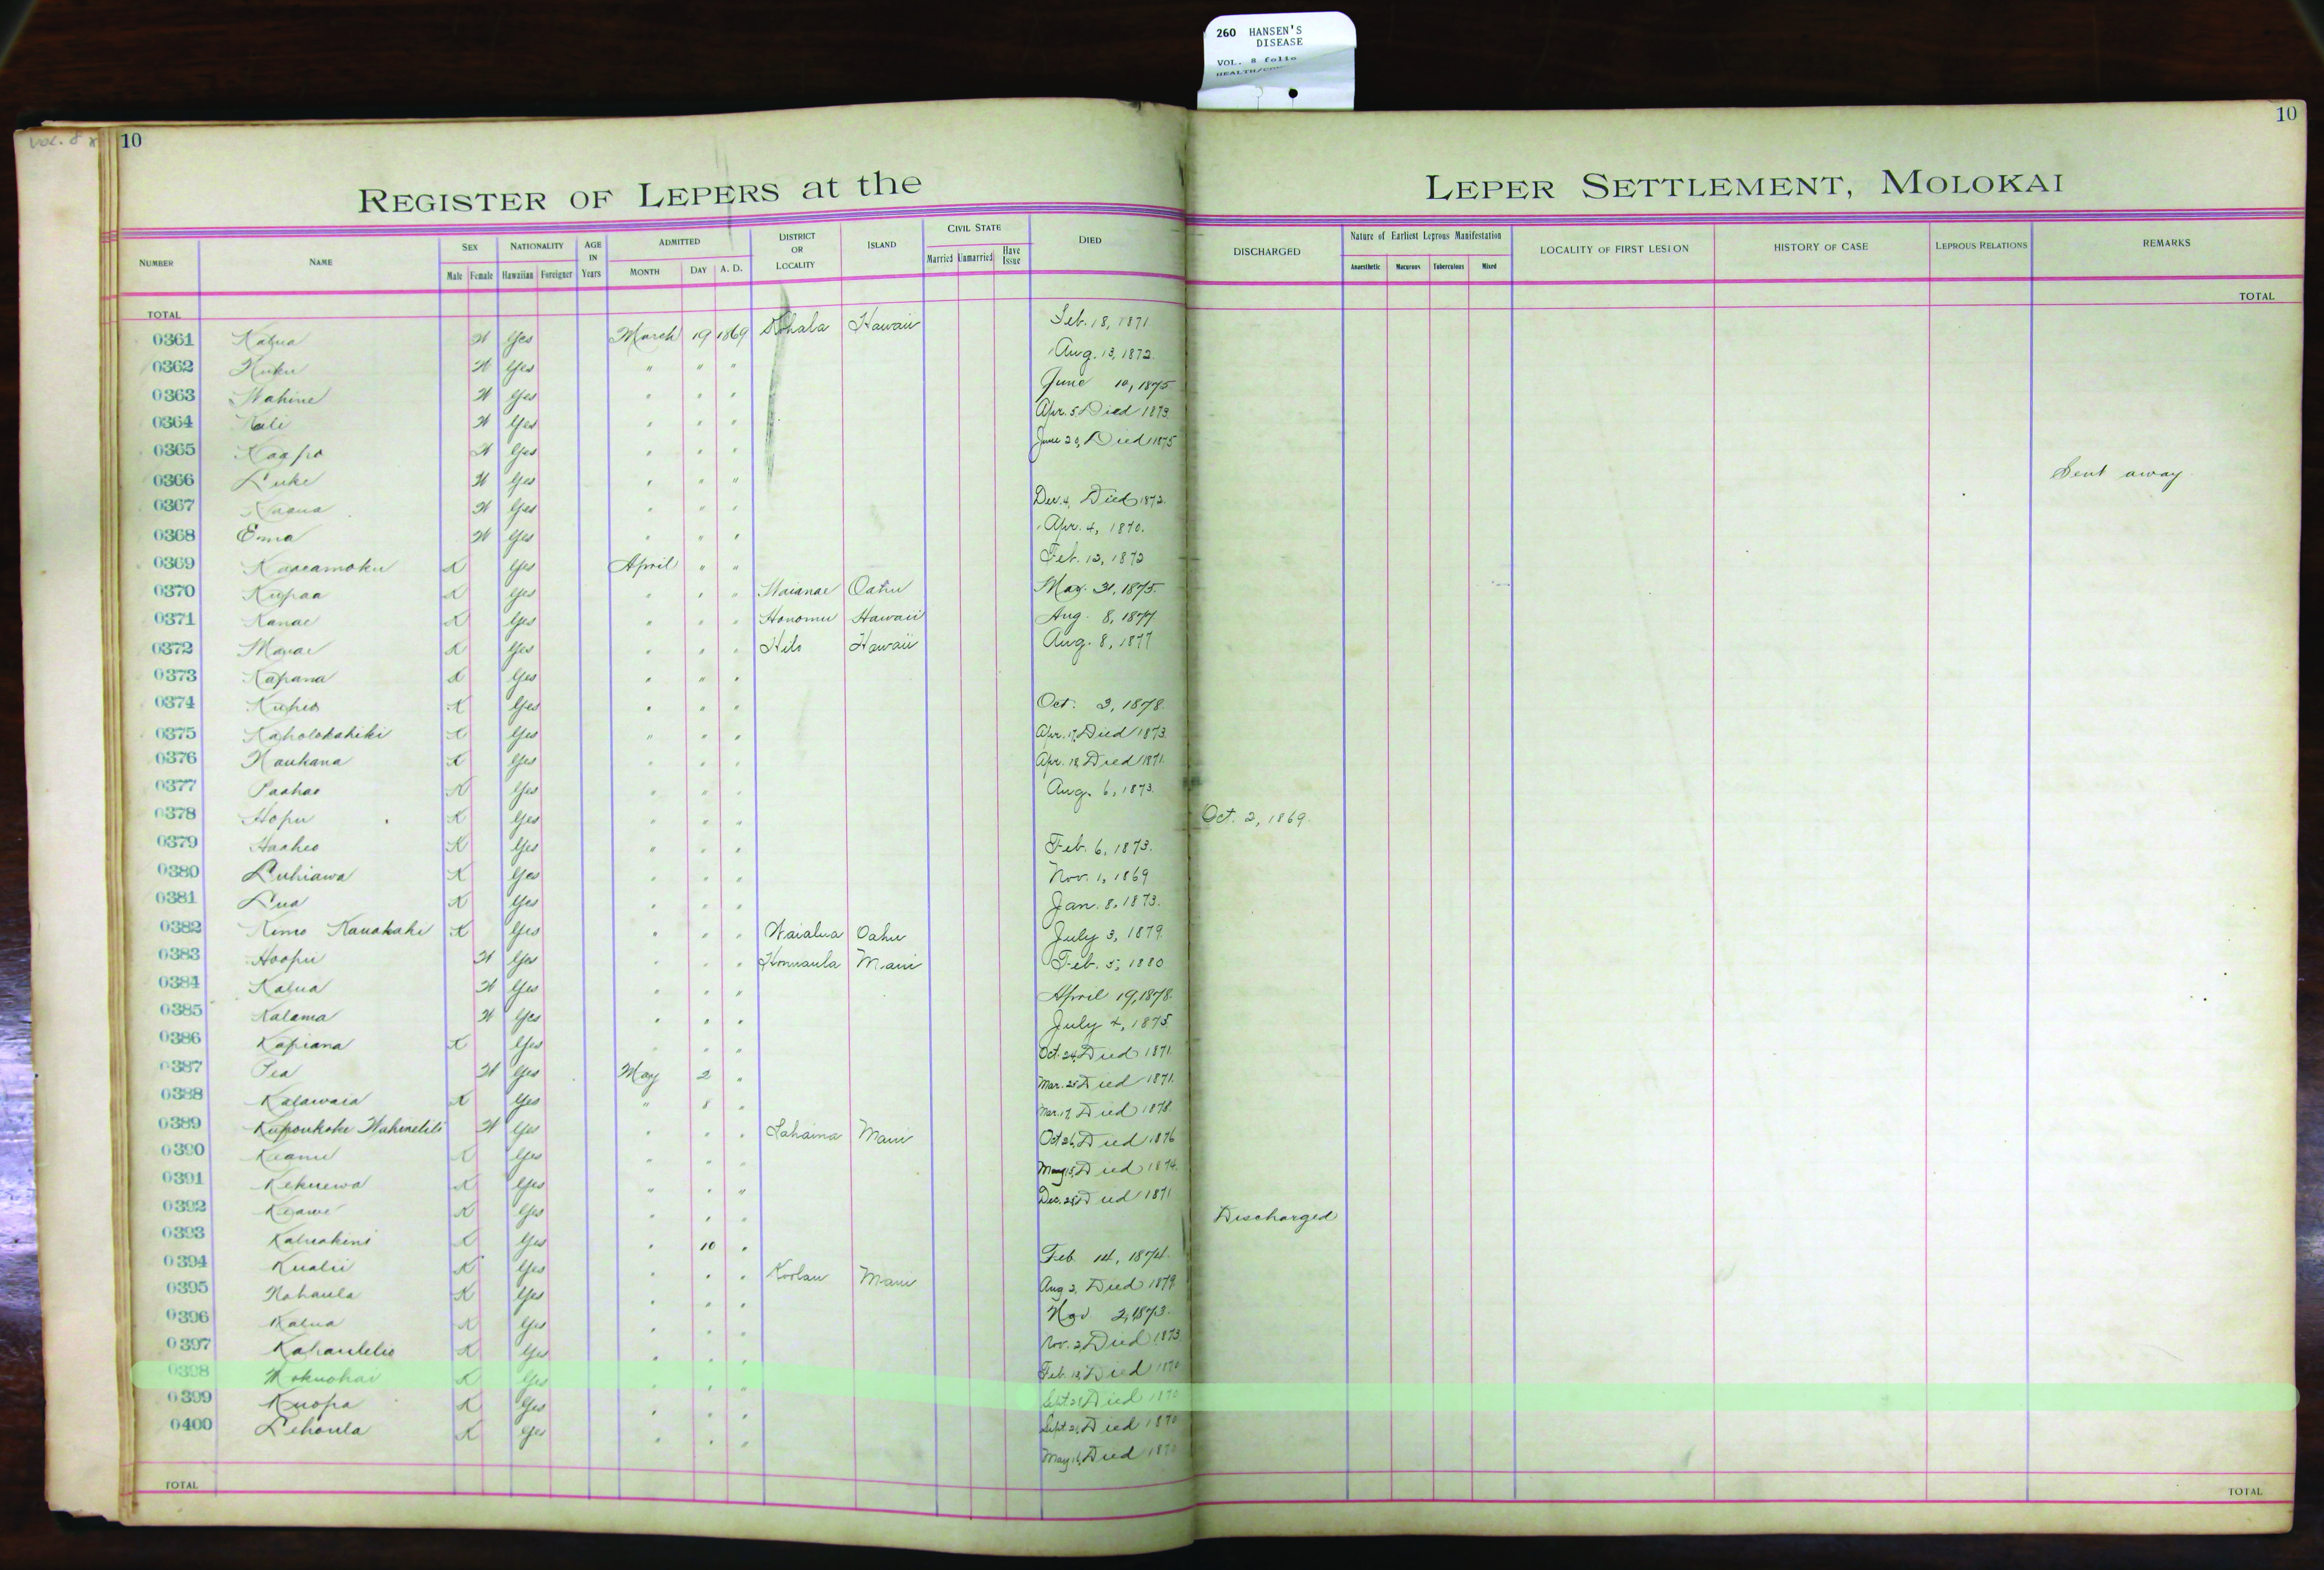 260 HANSEN'S
DISEASE
VOL. 8 folio
VOL. 8
10
10
REGISTER OF LEPERS at the LEPER SETTLEMENT, MOLOKAI
NUMBER NAME SEX Male Female NATIONALITY Hawaiian Foreigner AGE IN Years ADMITTED MONTH DAY A. D. DISTRICT OR LOCALITY ISLAND CIVIL STATE Married Unmarried Have Issue DIED DISCHARGED Nature of Earliest Leprous Manifestation Anaesthetic Macurous Tuberculous Mixed LOCALITY OF FIRST LESION HISTORY OF CASE LEPROUS RELATIONS REMARKS
TOTAL TOTAL
0361 Kalua W Yes March 19 1869 Kohala Hawaii Feb. 18, 1871
0362 Kuku W Yes " " " Aug. 13, 1872.
0363 Wahine W Yes " " " June 10, 1875
0364 Kali W Yes " " " Apr. 5 Died 1873.
0365 Kaapo W Yes " " " June 29, Died 1875
0366 Luke W Yes " " " Sent away
0367 W Yes " " " Dec. 4, Died 1872.
0368 Emma W Yes " " " Apr. 4, 1870.
0369 Kaaeamoku K Yes April " " Feb. 12, 1872
0370 Kupaa K Yes " " " Waianae Oahu May. 31, 1875.
0371 Kanae K Yes " " " Honomu Hawaii Aug. 8, 1877
0372 K Yes " " " Hilo Hawaii Aug. 8, 1877
0373 Kapana K Yes " " "
0374 Kuheo K Yes " " " Oct. 3, 1878.
0375 Kaholokahiki K Yes " " " Apr. 17, Died 1873.
0376 Naukana K Yes " " " Apr. 18 Died 1871.
0377 Paahao K Yes " " " Aug. 6, 1873.
0378 Hopu K Yes " " " Oct. 2, 1869.
0379 Haaheo K Yes " " " Feb. 6, 1873.
0380 Luhiawa K Yes " " " Nov. 1, 1869
0381 Lua K Yes " " " Jan. 8, 1873.
0382 Kimo Kauakahi K Yes " " " Waialua Oahu July 3, 1879.
0383 Hoopii W Yes " " " Honuaula Maui Feb. 5, 1880
0384 Kalua W Yes " " " April 19, 1878.
0385 Kalama W Yes " " " July 4, 1875
0386 Kapiana K Yes " " " Oct. 24, Died 1871.
0387 Pea W Yes May 2 " Mar. 25 Died 1871.
0388 Kalawaia K Yes " 8 " Mar. 17, Died 1878.
0389 Kupoukoki W Yes " " " Lahaina Maui Oct 26, Died 1876
0390 Keanu K Yes " " " May 15, Died 1874.
0391 Kekuewa K Yes " " " Dec. 25 Died 1871
0392 Keawe K Yes " " " Discharged
0393 Kaluakini K Yes " 10 " Feb. 14, 1874.
0394 Kualii K Yes " " " Koolau Maui Aug 2, Died 1879.
0395 Nahaula K Yes " " " Nov 2, 1873.
0396 Kalua K Yes " " " Nov. 2, Died 1873
0397 Kahaulelio K Yes " " " Feb. 18, Died 1870
0398 Mokuohai K Yes " " " Sept. 28 Died 1870
0399 Kuopa K Yes " " " Sept. 21, Died 1870
0400 Lehoula K Yes " " " May 16, Died 1870
TOTAL TOTAL